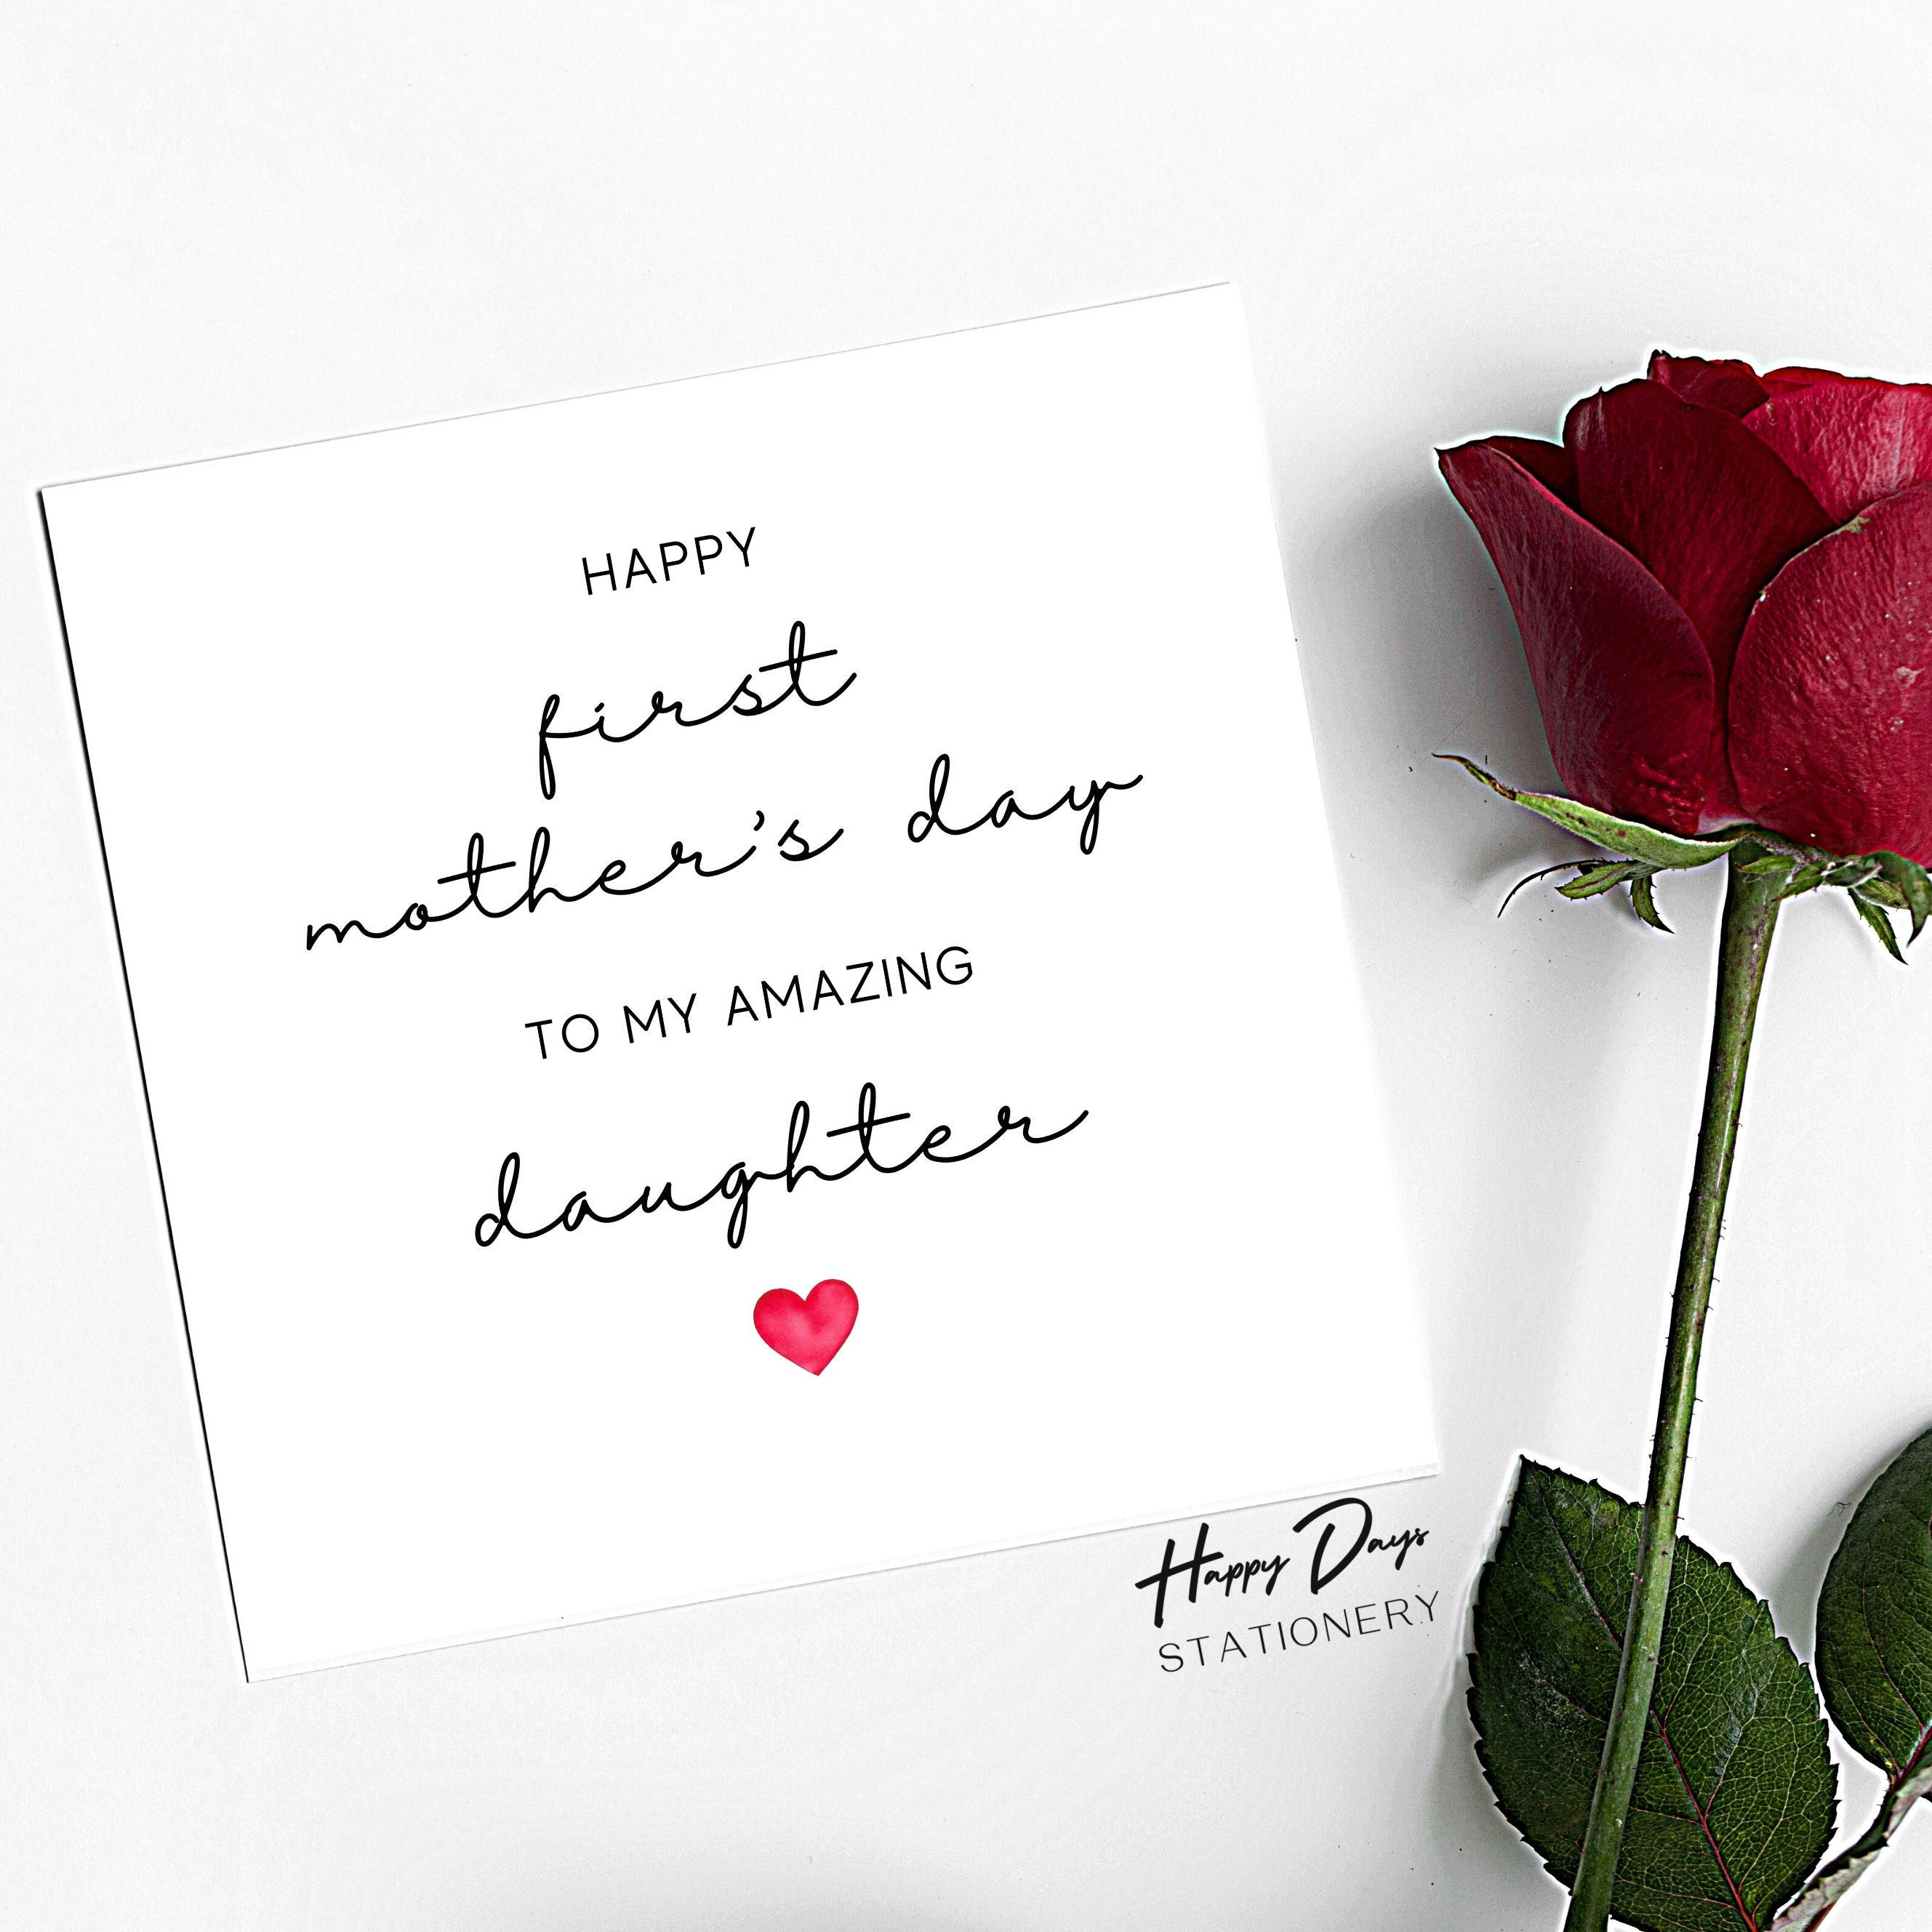 HAPPY
first
mother's day
TO MY AMAZING
daughter
Happy Days
STATIONERY